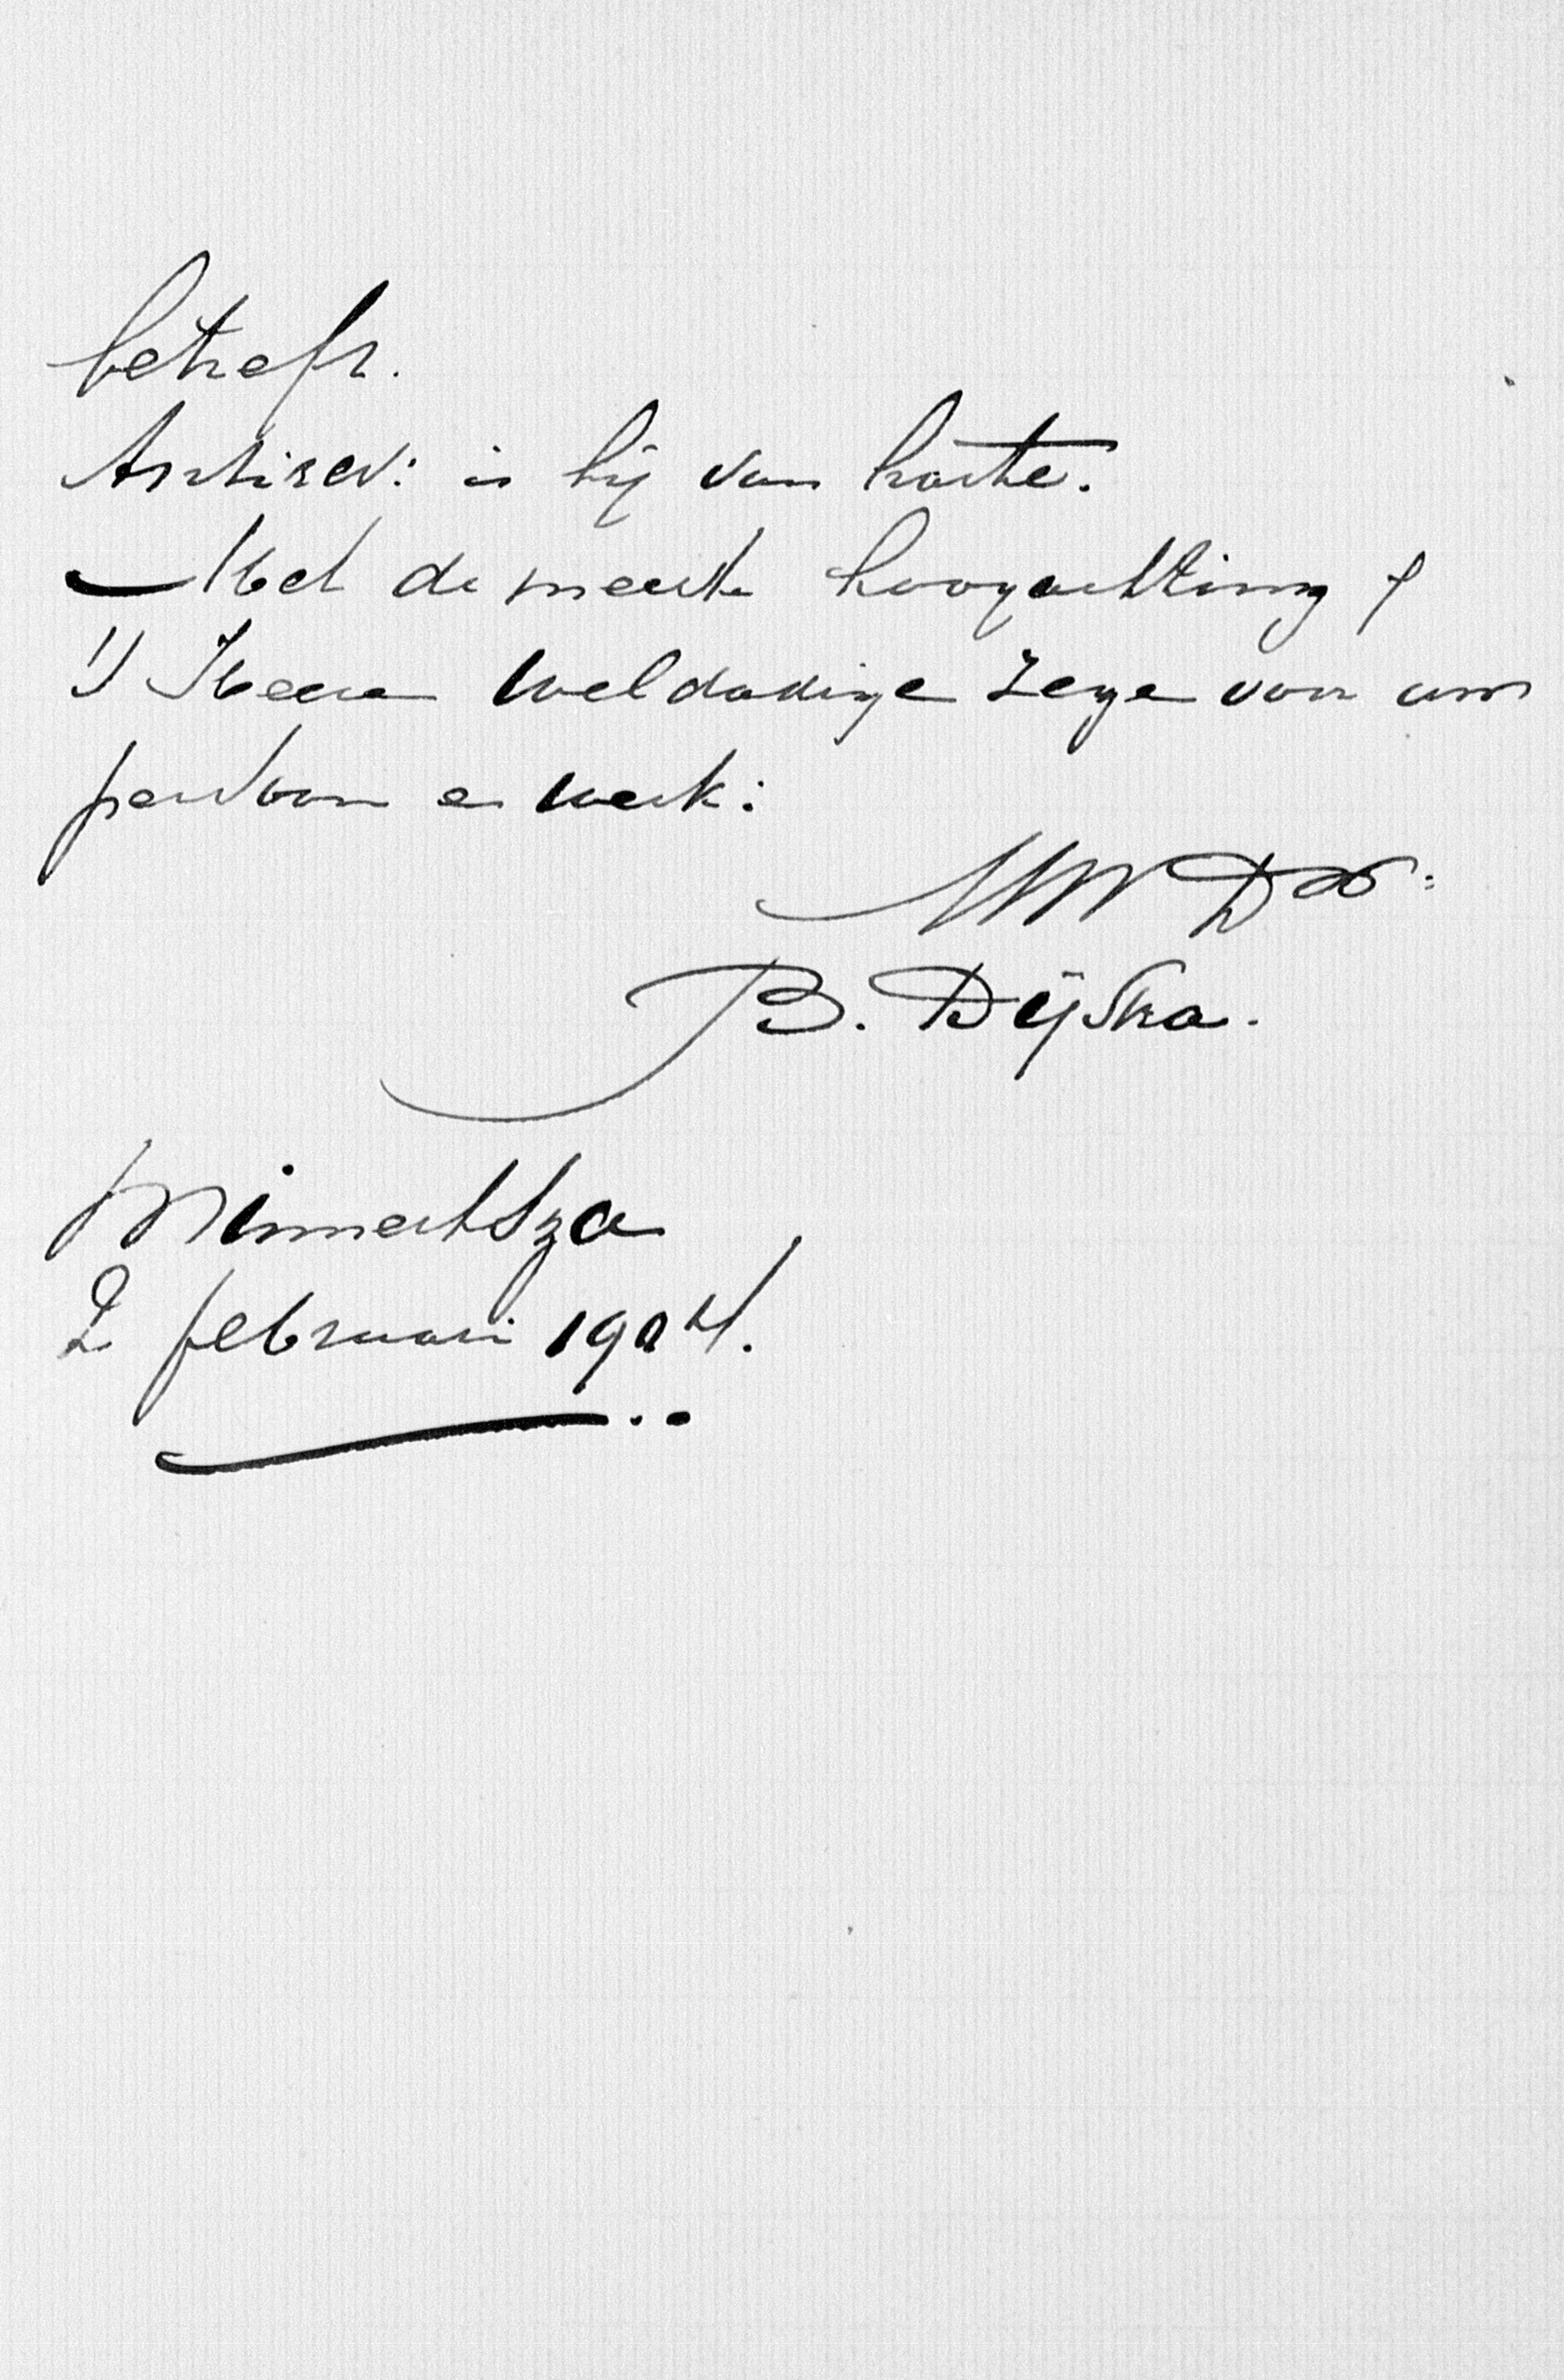 betreft.
Antirev: is hij van harte.
Met de meeste hoogachting &
'sHeeren weldadige zegen voor uw
persoon en werk:
UW Dw:
B. Dijkstra.
Minnertsga
2 februari 1904.